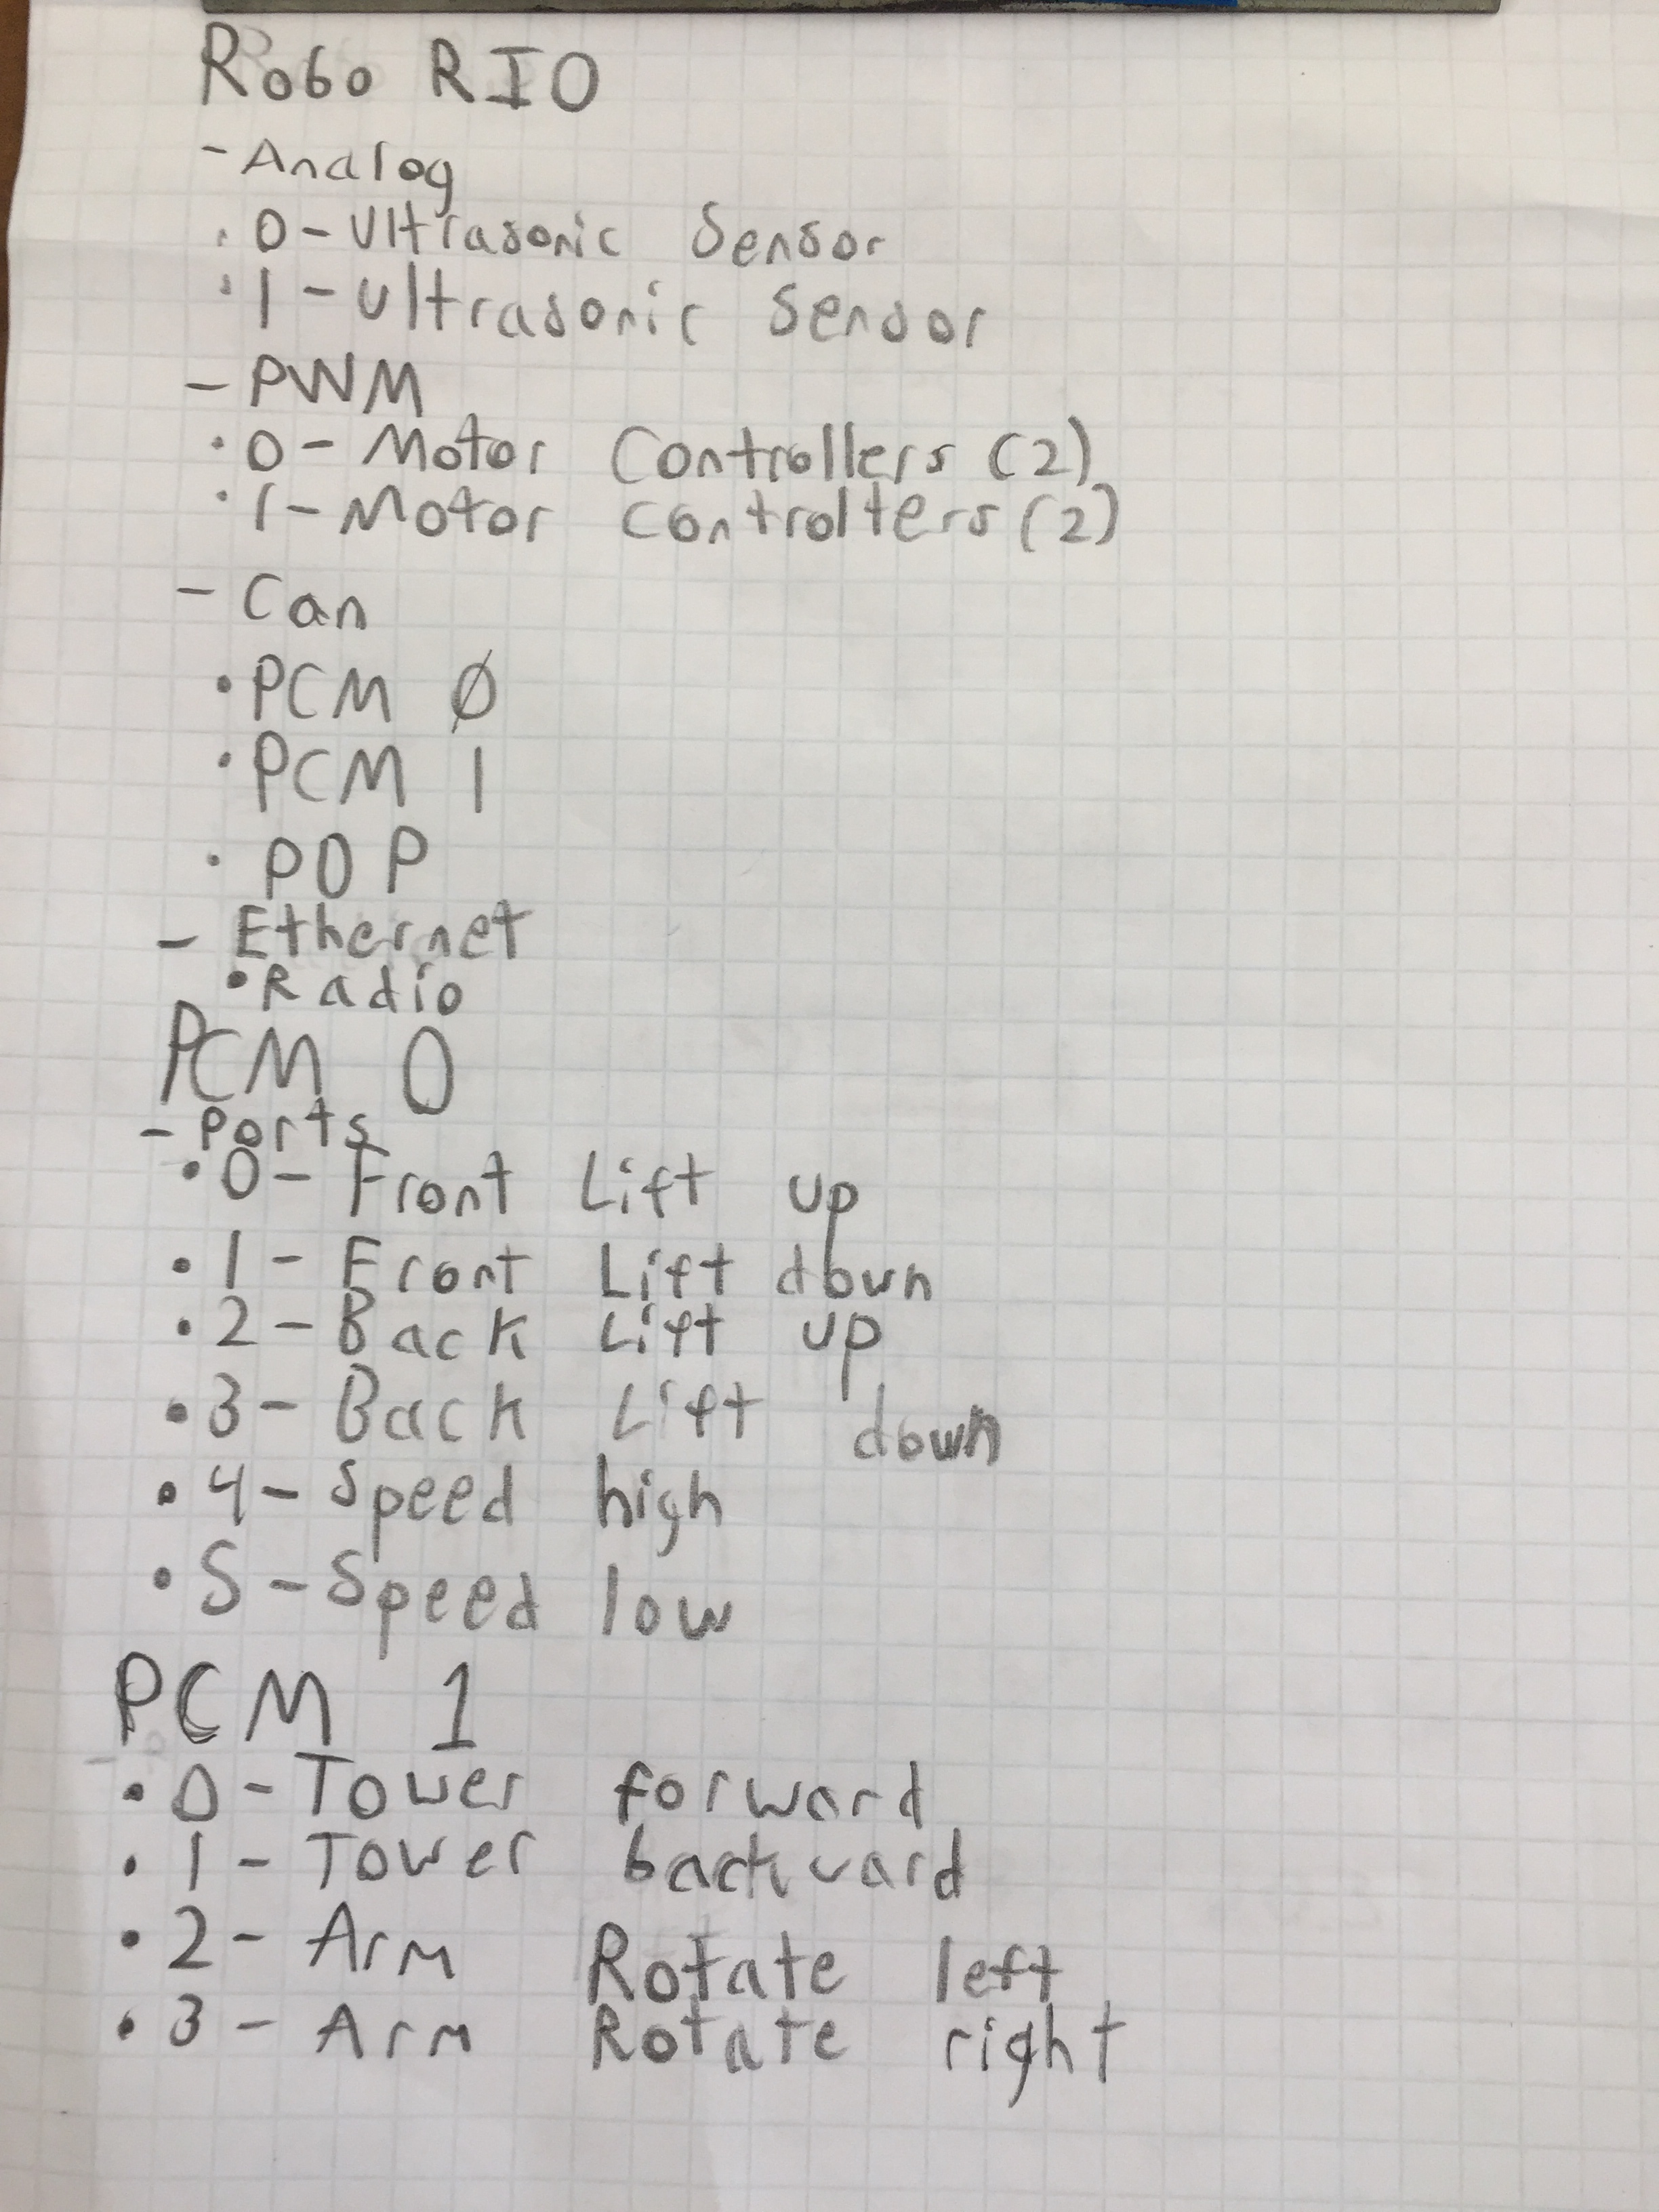 Robo RIO
- Analog
· 0 - Ultrasonic Sensor
· 1 - Ultrasonic Sensor
- PWM
· 0 - Motor Controllers (2)
· 1 - Motor Controllers (2)
- Can
· PCM Ø
· PCM 1
· PDP
- Ethernet
· Radio
PCM 0
- Ports
· 0 - Front Lift up
· 1 - Front Lift down
· 2 - Back Lift up
· 3 - Back Lift down
· 4 - Speed high
· 5 - Speed low
PCM 1
· 0 - Tower forward
· 1 - Tower backward
· 2 - Arm Rotate left
· 3 - Arm Rotate right